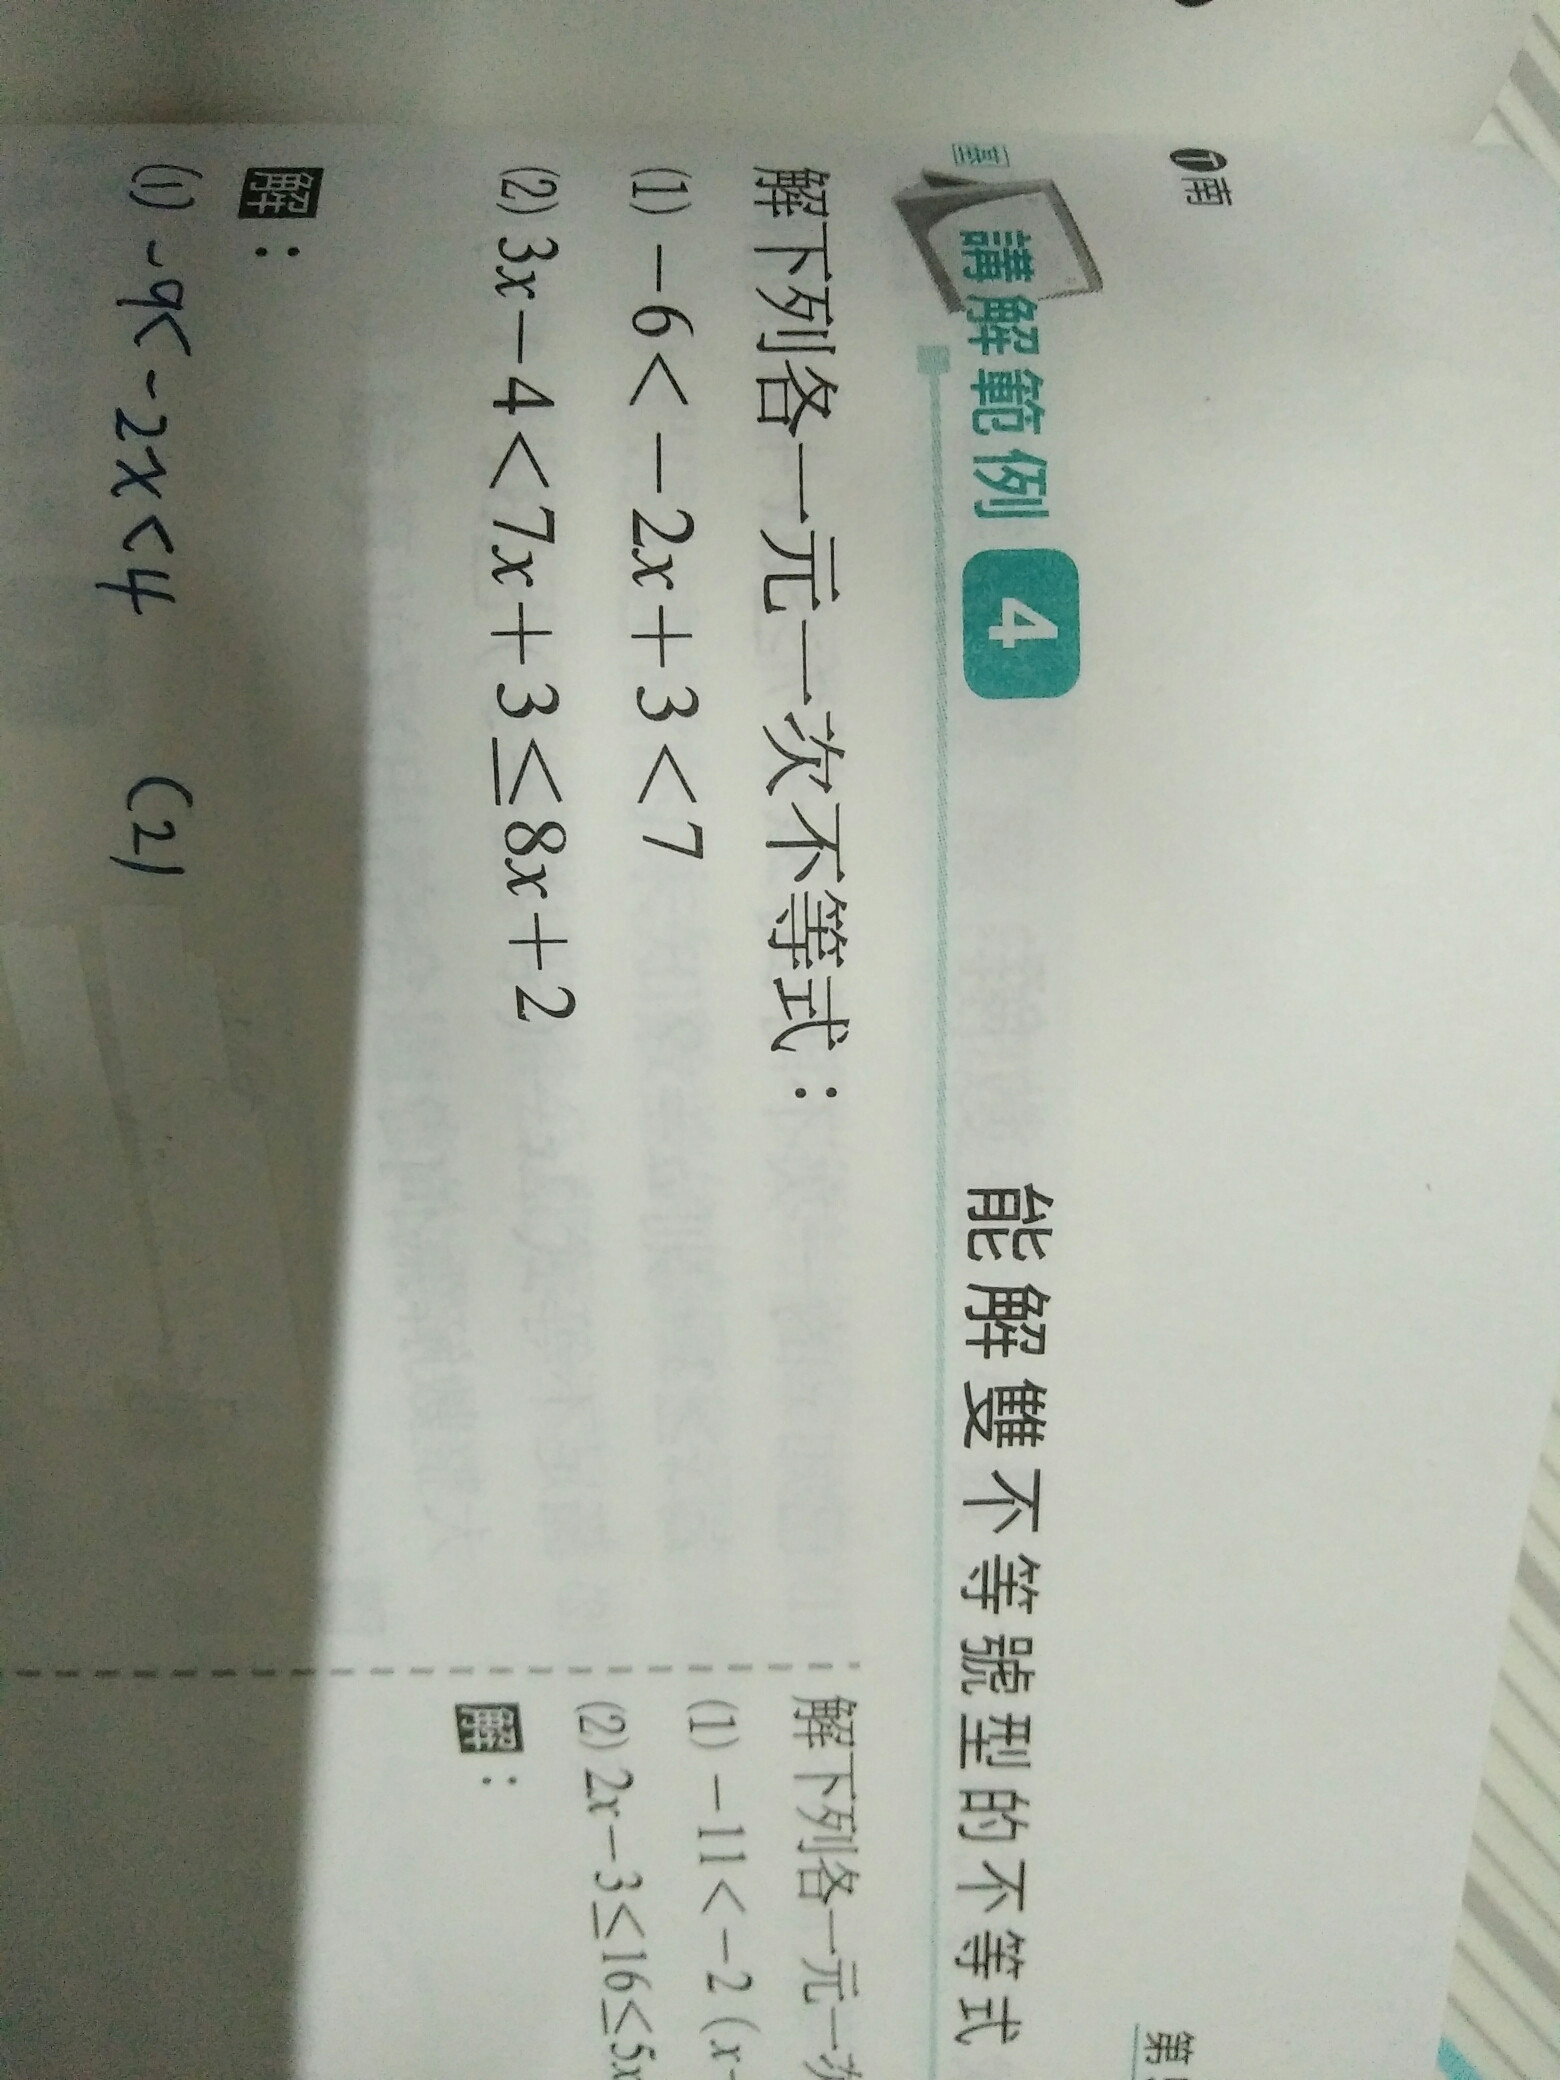 南
講解範例 4 能解雙不等號型的不等式
解下列各一元一次不等式：
(1) －6＜－2x＋3＜7
(2) 3x－4＜7x＋3≤8x＋2
解：
(1) -9< -2x<4 (2)
解下列各一元一次
(1) －11＜－2(x－
(2) 2x－3≤16≤5x
解：
第